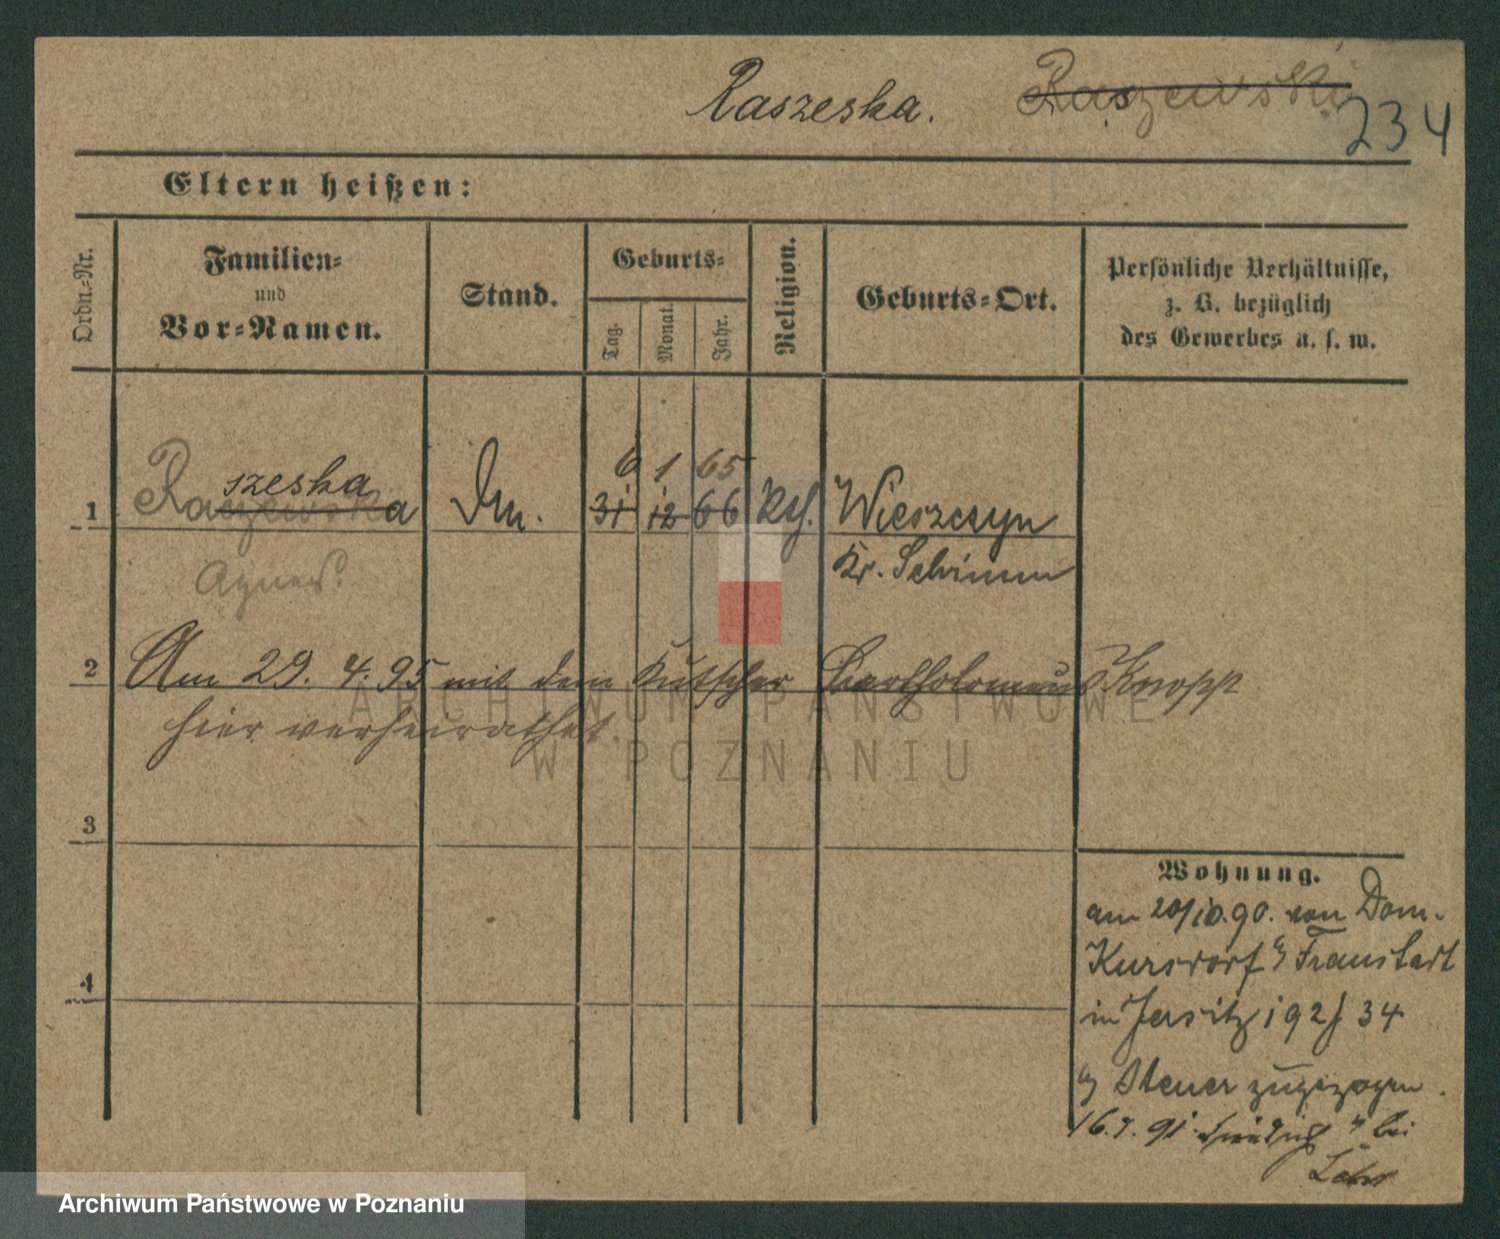 Raszeska. Raszewski
234
Eltern heißen:
Ordn.-Nr.
Familien-
und
Vor-Namen.
Stand.
Geburts-
Tag.
Monat.
Jahr.
Religion.
Geburts-Ort.
Persönliche Verhältnisse,
z. B. bezüglich
des Gewerbes u. s. w.
6 1 65
szeska
1 Raszewska 31 12 66 Wieszczyn
Agnes. Kr. Schrimm
2 Am 29. 4. 95 mit dem Kutscher Bartholomäus Knopp
hier verheirathet.
3
4
Wohnung.
am 20/10.90. von Dom.
Kursdorf Fraustadt
in Jersitz 192/34
Steuer zugezogen.
16.7.91. bei
ARCHIWUM PAŃSTWOWE
W POZNANIU
Archiwum Państwowe w Poznaniu